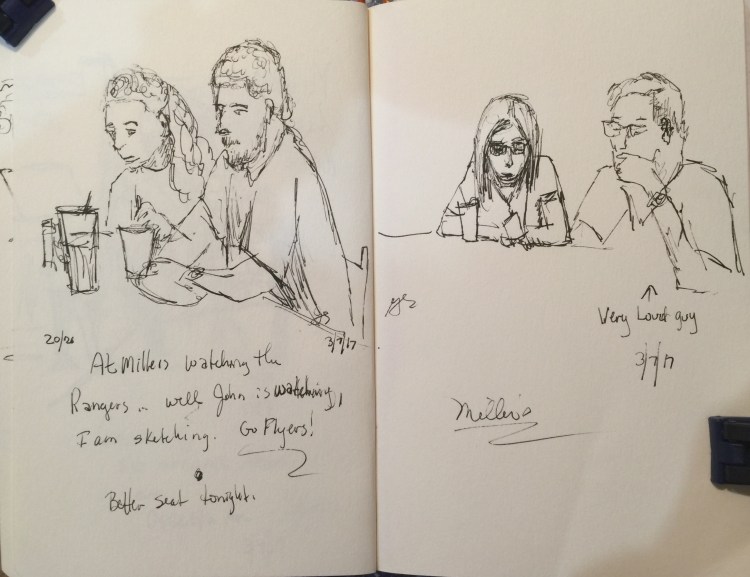 20/20
3/7/17
At Millers watching the
Rangers .. well John is watching,
I am sketching. Go Flyers!
Better seat tonight.
Very Loud guy
3/7/17
Millers